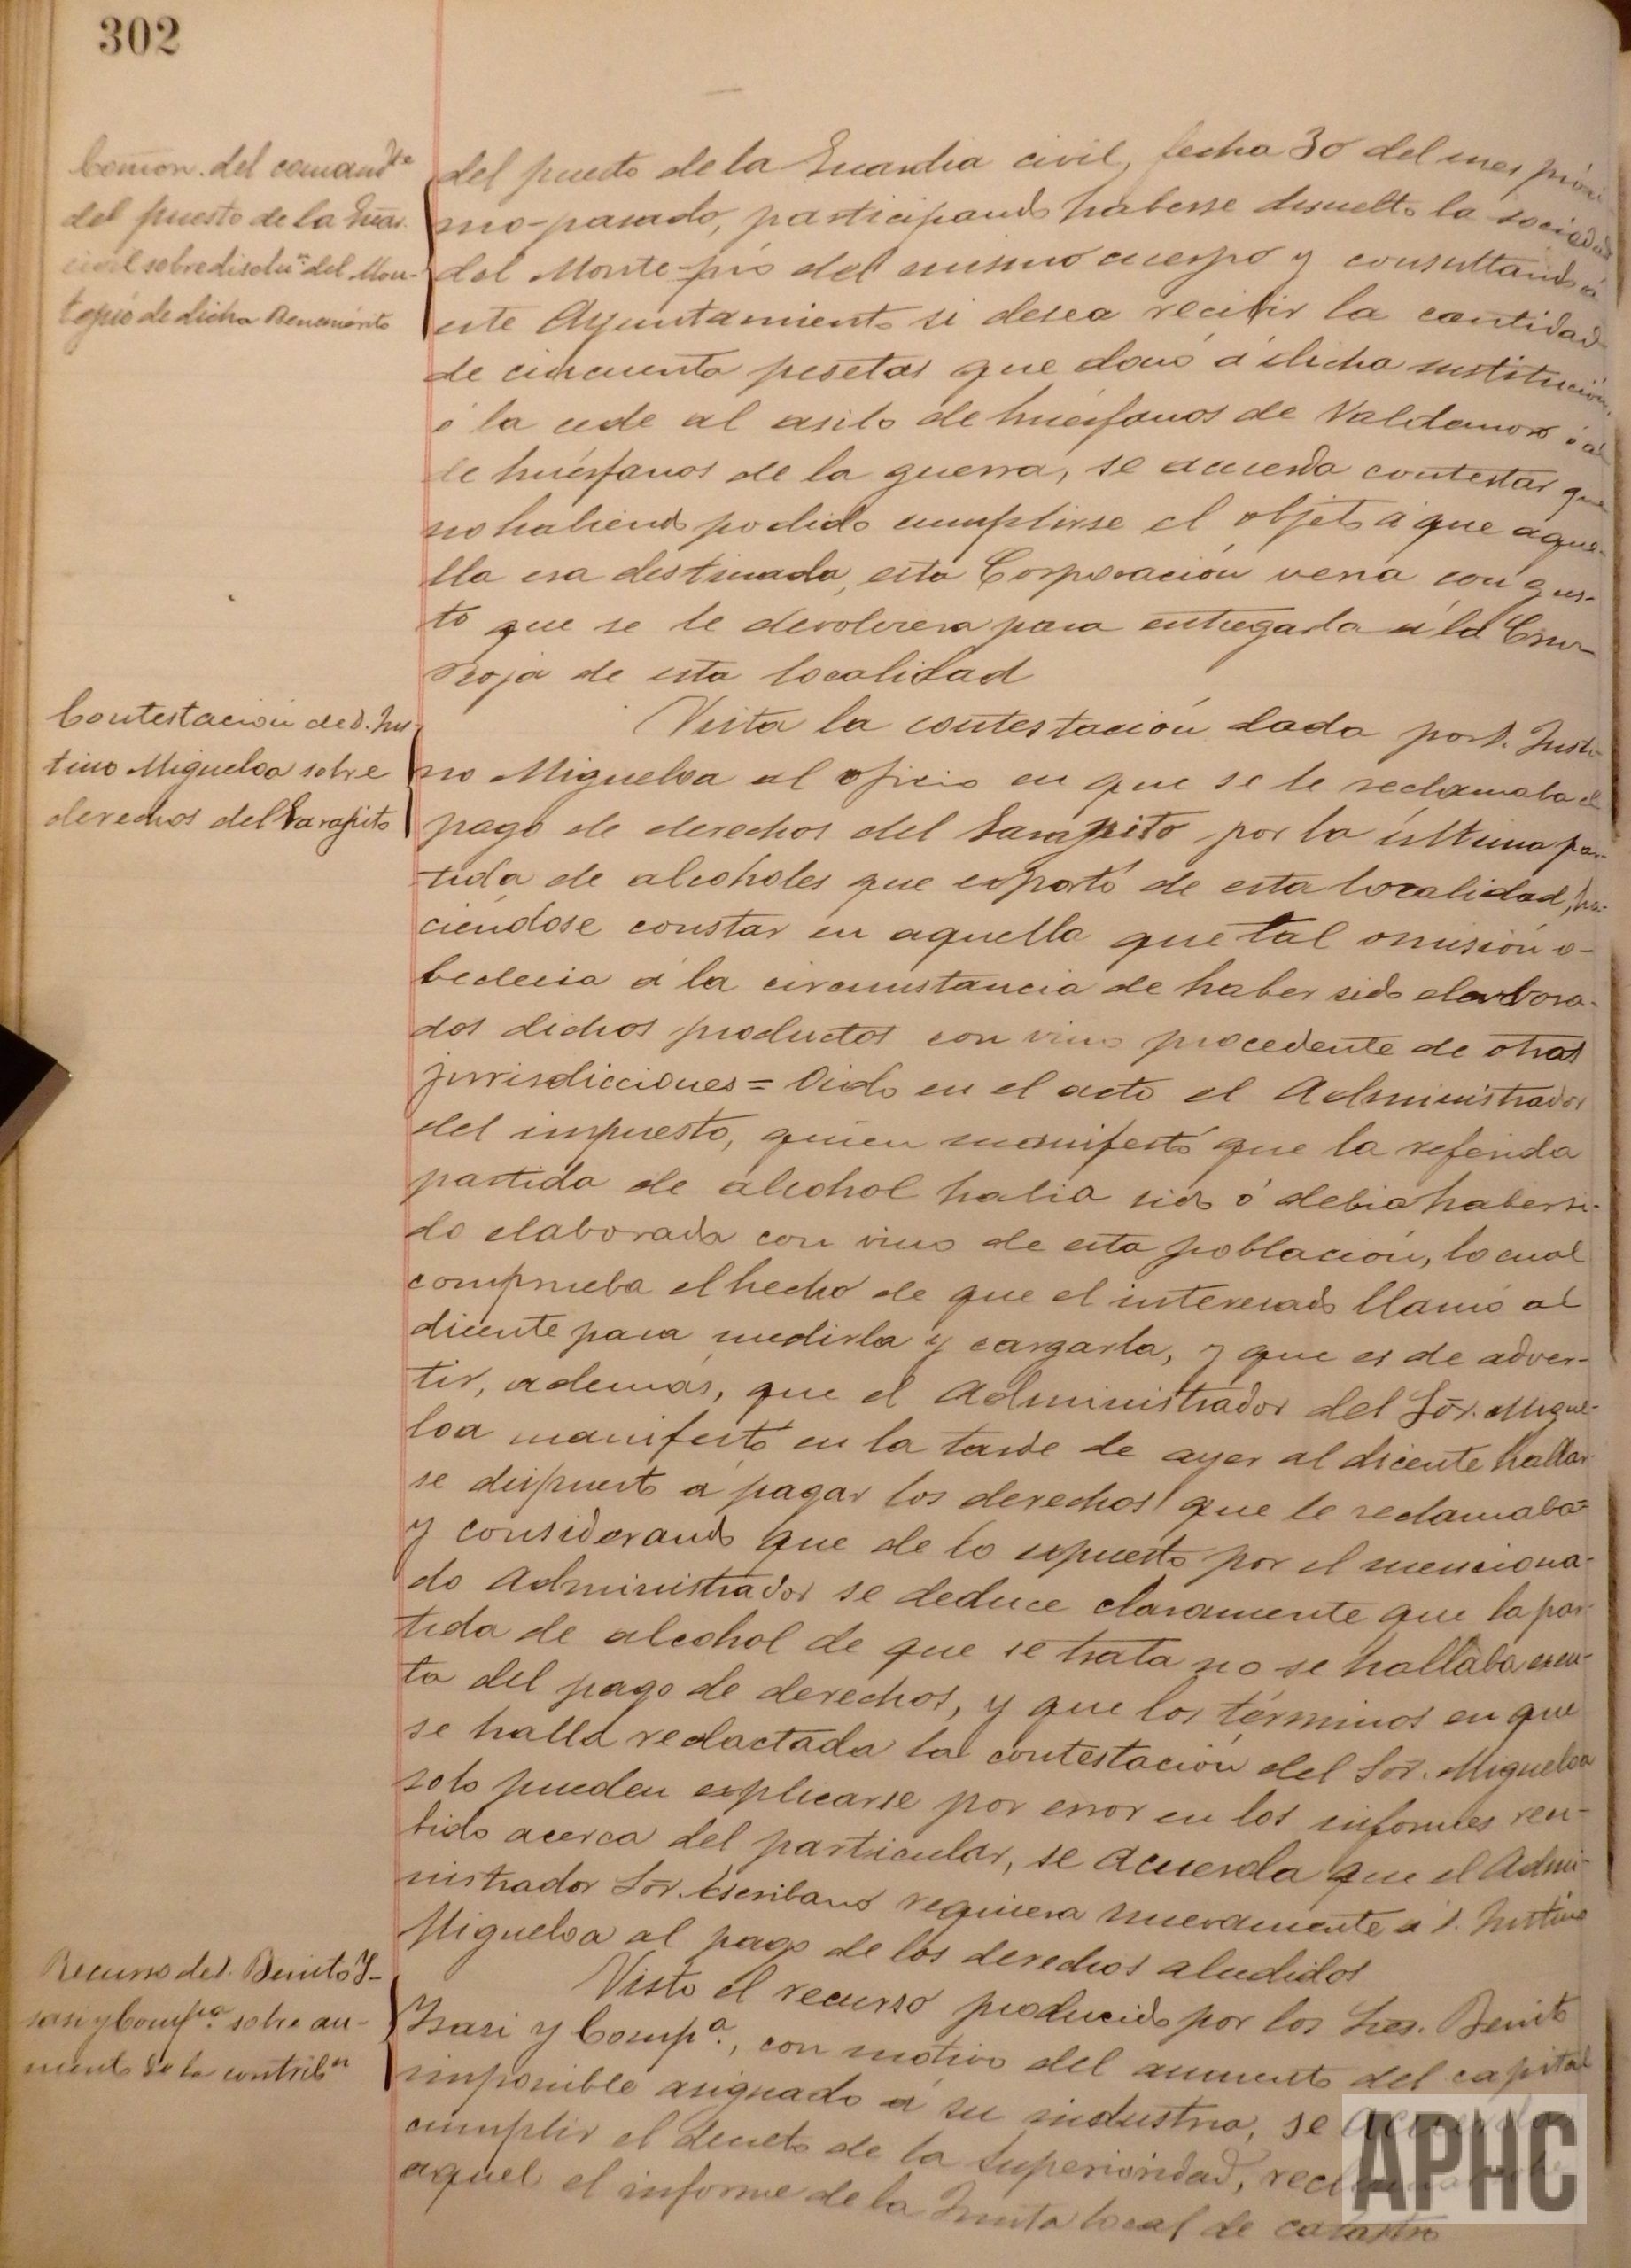 302
Comon. del comand.te
del puesto de la Guar.
civil sobre disoluon. del Mon-
tepío de dicho Benemérito
del puesto de la Guardia civil, fecha 30 del mes próxi
mo-pasado, participando haberse disuelto la sociedad
del Monte-pío del mismo cuerpo y consultando á
este Ayuntamiento si desea recibir la cantidad
de cincuenta pesetas que donó á dicha institución,
ó la cede al asilo de huérfanos de Valdemoro ó al
de huérfanos de la guerra, se acuerda contestar que
no habiendo podido cumplirse el objeto á que aque-
lla era destinada, esta Corporación vería con gus-
to que se le devolviera para entregarla á la Cruz
Roja de esta localidad
Contestación de D. Jus-
tino Migueloa sobre
derechos del Garapito
Vista la contestación dada por D. Justi-
no Migueloa al oficio en que se le reclamaba el
pago de derechos del Garapito por la última par-
tida de alcoholes que exportó de esta localidad, ha-
ciéndose constar en aquella que tal omisión o-
bedecia á la circunstancia de haber sido elabora-
dos dichos productos con vino procedente de otras
jurisdicciones = Oido en el acto el Administrador
del impuesto, quien manifestó que la referida
partida de alcohol habia sido ó debia haber si-
do elaborada con vino de esta población, lo cual
comprueba el hecho de que el interesado llamó al
dicente para medirla y cargarla, y que es de adver-
tir, además, que el Administrador del Sor. Migue-
loa manifestó en la tarde de ayer al dicente hallar
se dispuesto á pagar los derechos que le reclamaba
y considerando que de lo expuesto por el menciona-
do Administrador se deduce claramente que la par-
tida de alcohol de que se trata no se hallaba exen-
ta del pago de derechos, y que los términos en que
se halla redactada la contestación del Sor. Migueloa
solo pueden explicarse por error en los informes ren-
dido acerca del particular, se acuerda que el Admi-
nistrador Sor. Escribano requiera nuevamente á D. Justino
Migueloa al pago de los derechos aludidos
Recurso de D. Benito Y-
sasi y Compa. sobre au-
mento de la contribon
Visto el recurso producido por los Sres. Benito
Ysasi y Compa., con motivo del aumento del capital
imponible asignado á su industria, se acuerda
cumplir el decreto de la Superioridad,
aquel el informe de la Junta local de catastro
APHC